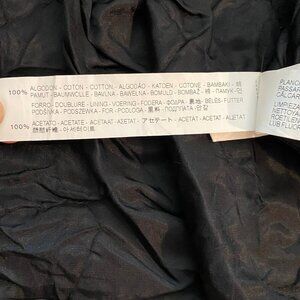 100% ALGODON - COTON - COTTON - ALGODÃO - KATOEN - COTONE - BAMBAKI - 綿
PAMUT - BAUMWOLLE - BAVLNA - BAWEŁNA - BOMULD - BOMBAŽ - 棉 - ПАМУК - 면
FORRO - DOUBLURE - LINING - VOERING - FODERA - ΦΟΔΡΑ - 裏地 - BÉLÉS - FUTTER
PODŠÍVKA - PODSZEWKA - FOR - PODLOGA - 里料 - ПОДПЛАТА - 안감
100% ACETATO - ACETATE - ACETAAT - ASETAT - アセテート - ACETAT - OCTAN - ACETAT - АЦЕТАТ
아세테이트
PLANC
PASSAR
CALCAR
LIMPIEZA
NETTOYA
LUB FLUO